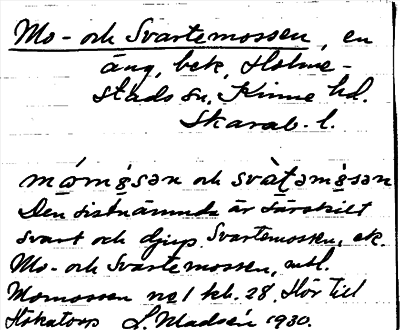 Mo- och Svartemossen, en
äng, bek, Holme-
stads sn, Kinne hd.
Skarab. l.
och
Den sistnämnda är särskilt
svart och djup. Svartemossen, ek.
Mo- och Svartemossen, utsl.
Momossen no 1 kb. 28. Hör till
Hökatorp L. Madsén 1930.